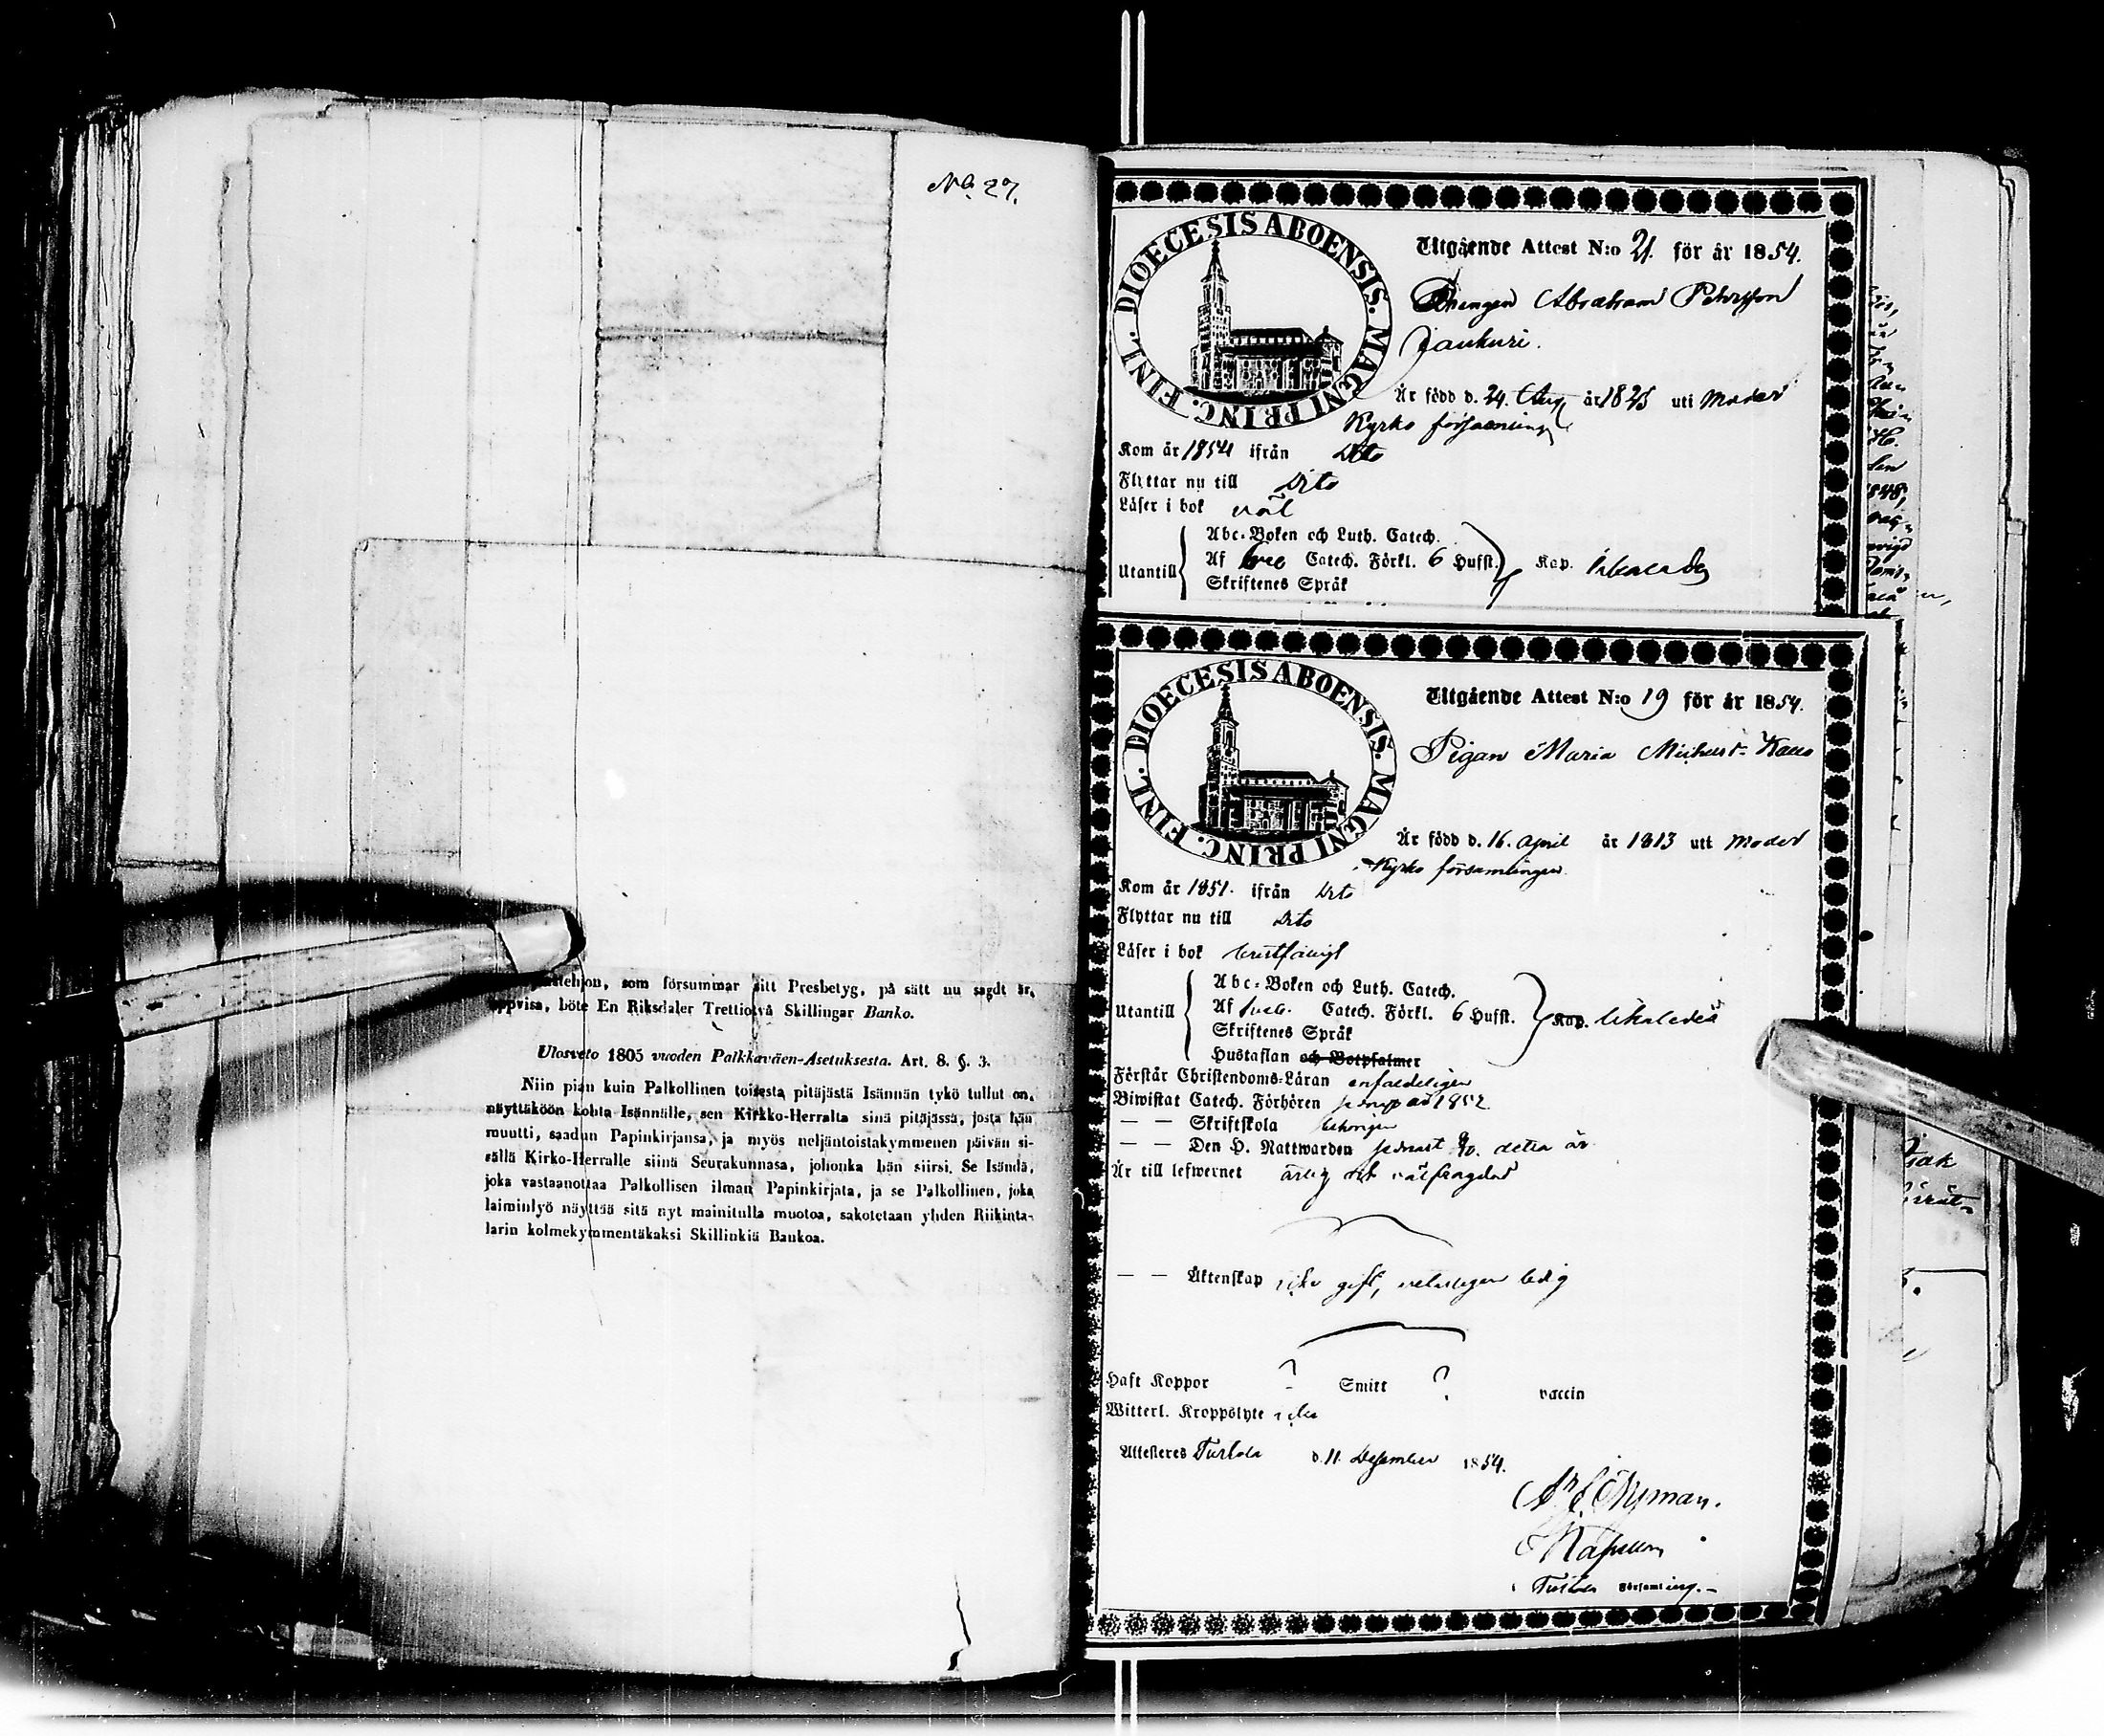 No. 27.
som försummar sitt Presbetyg, på sätt nu sagdt är,
uppvisa, böte En Riksdaler Trettiotvå Skillingar Banko.
Ulosveto 1805 vuoden Palkkaväen-Asetuksesta. Art. 8. §. 3.
Niin pian kuin Palkollinen toisesta pitäjästä Isännän tykö tullut on,
näyttäköön kohta Isännälle, sen Kirkko-Herralta sinä pitäjässä, josta hän
muutti, saadun Papinkirjansa, ja myös neljäntoistakymmenen päivän si-
sällä Kirko-Herralle siinä Seurakunnasa, johonka hän siirsi. Se Isändä,
joka vastaanottaa Palkollisen ilman Papinkirjata, ja se Palkollinen, joka
laiminlyö näyttää sitä nyt mainitulla muotoa, sakotetaan yhden Riikinta-
larin kolmekymmentäkaksi Skillinkiä Bankoa.
DIOECESIS ABOENSIS. MAGNI PRINC. FINL.
Utgående Attest N:o 21. för år 1854.
Drengen Abraham Pehrsson
Jaukuri.
Är född d. 24. Aug år 1825 uti Moder
Kyrko församling
Kom år 1854 ifrån Dito
Flyttar nu till Dito
Läser i bok väl
Utantill
Abc-Boken och Luth. Catech.
Af Catech. Förkl. 6 Hufst. Kap.
Skriftenes Språk
DIOECESIS ABOENSIS. MAGNI PRINC. FINL.
Utgående Attest N:o 19 för år 1854.
Pigan Maria
Är född d. 16. April år 1813 uti Moder
Kyrko församlingen
Kom år 1851. ifrån Dito
Flyttar nu till Dito
Läser i bok
Utantill
Abc-Boken och Luth. Catech.
Af Catech. Förkl. 6 Hufst. Kap.
Skriftenes Språk
Hustaflan och Botpsalmer
Förstår Christendoms-Läran enfaldeligen
Biwistat Catech. Förhören 1852
— — Skriftskola
— — Den H. Nattwarden senast detta år
Är till lefwernet ärlig och välfrägdad
— — Äktenskap icke gift, ledig
Haft Koppor ? Smitt ? vaccin
Witterl. Kroppslyte icke
Attesteres d. 11. December 1854.
Nyman.
Kapellan
Församling.